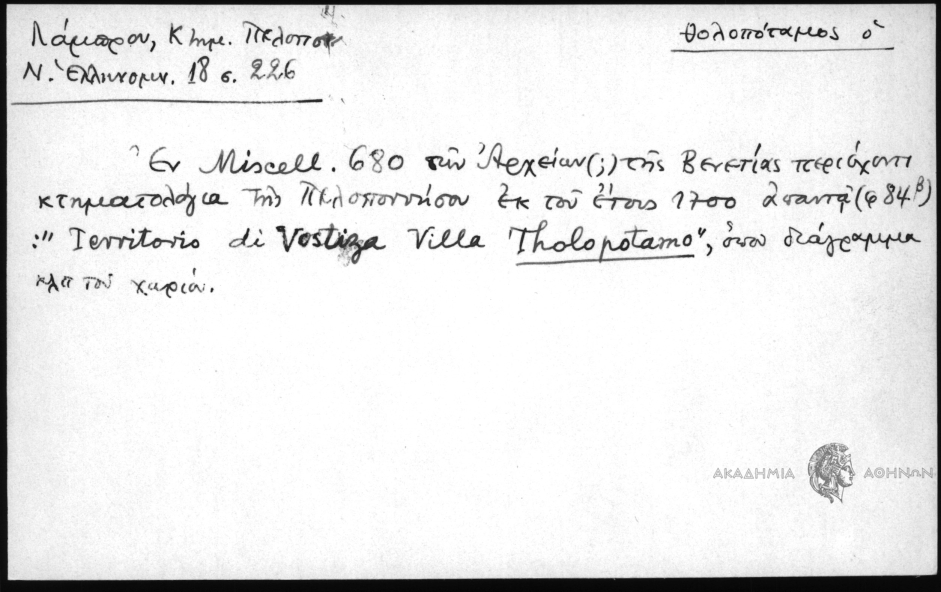 Λάμπρου, Κτημ. Πελοπον
Ν. Ἑλληνομν. 18 σ. 226
θολοπόταμος ὁ
Ἐν Miscell. 680 τῶν Ἀρχείων(;) τῆς Βενετίας περιέχοντι
κτηματολόγια τῆς Πελοποννήσου ἐκ τοῦ ἔτους 1700 ἀπαντᾷ (φ 84β)
:" Territorio di Vostiza Villa Tholopotamo", ὅπου διάγραμμα
κλπ τοῦ χωριοῦ.
ΑΚΑΔΗΜΙΑ ΑΘΗΝΩΝ